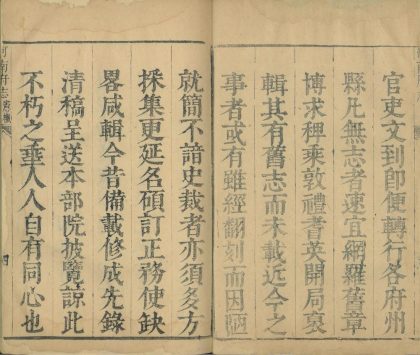 官吏文到卽便轉行各府州
縣凡無志者速宜網羅舊章
博求稗乘敦禮耆英開局裒
輯其有舊志而未載近今之
事者或有雖經翻刻而因陋
就簡不諳史裁者亦須多方
採集更延名碩訂正務使缺
畧咸輯今昔備載修成先錄
清稿呈送本部院披覽諒此
不朽之埀人人自有同心也